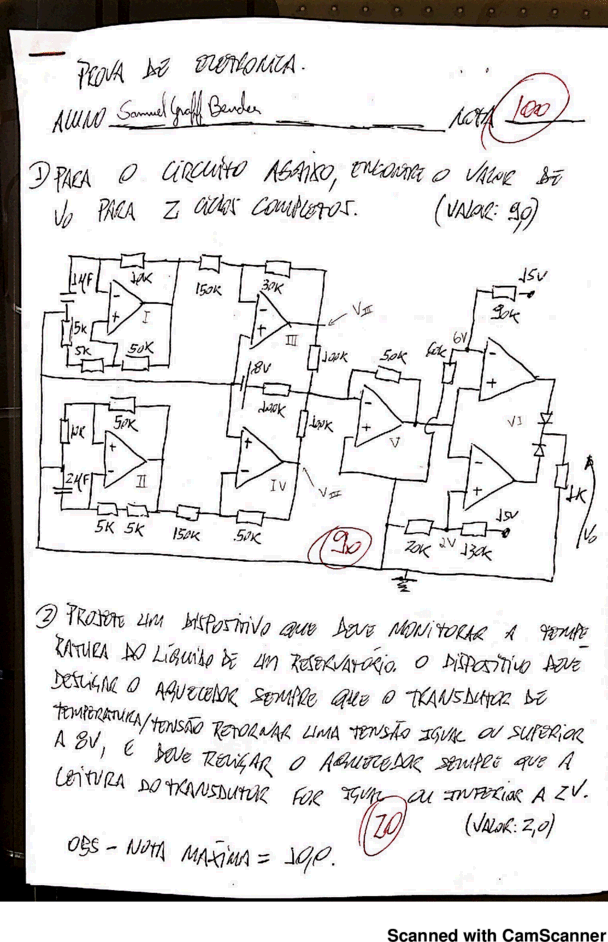 PROVA DE ELETRONICA.
ALUNO Samuel Groff Bender NOTA 100
1) PARA O CIRCUITO ABAIXO, ENCONTRE O VALOR DE
Vo PARA 2 CICLOS COMPLETOS. (VALOR: 9,0)
1MF
10K
150K
30K
15V
90K
I
5K
5K
50K
III
VIII
8V
100K
100K
50K
60K
6V
V
VI
10K
50K
II
2MF
5K 5K
150K
50K
IV
100K
9,0
20K
2V
15V
130K
1K
Vo
2) PROJETE UM DISPOSITIVO QUE DEVE MONITORAR A TEMPE
RATURA DO LÍQUIDO DE UM RESERVATÓRIO. O DISPOSITIVO DEVE
DESLIGAR O AQUECEDOR SEMPRE QUE O TRANSDUTOR DE
TEMPERATURA/TENSÃO RETORNAR UMA TENSÃO IGUAL OU SUPERIOR
A 8V, E DEVE RELIGAR O AQUECEDOR SEMPRE QUE A
LEITURA DO TRANSDUTOR FOR IGUAL OU INFERIOR A 2V.
2,0
(VALOR: 2,0)
OBS - NOTA MAXIMA = 10,0.
Scanned with CamScanner